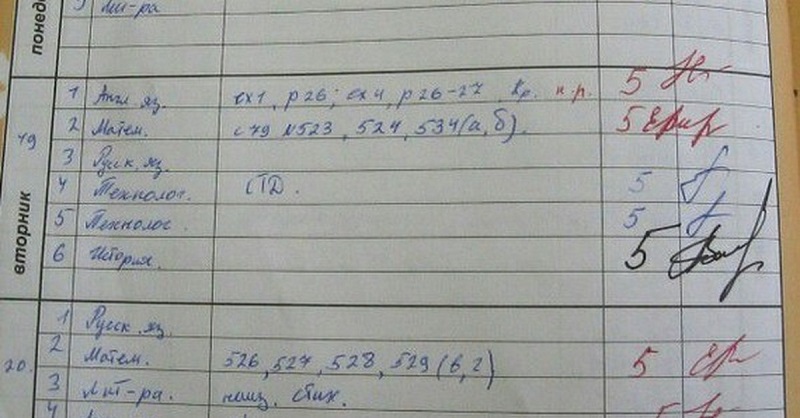 понед
5 Лит-ра
19
вторник
1 Англ. яз. ex1, p 26; ex 4, p 26-27 Кр. п.р. 5
2 Матем. с 79 №523, 524, 534(а, б). 5
3 Русск. яз.
4 Технолог. СТД. 5
5 Технолог. 5
6 История. 5
20.
1 Русск. яз.
2 Матем. 526, 527, 528, 529 (в, г) 5
3 Лит-ра. наиз. стих.
4 5